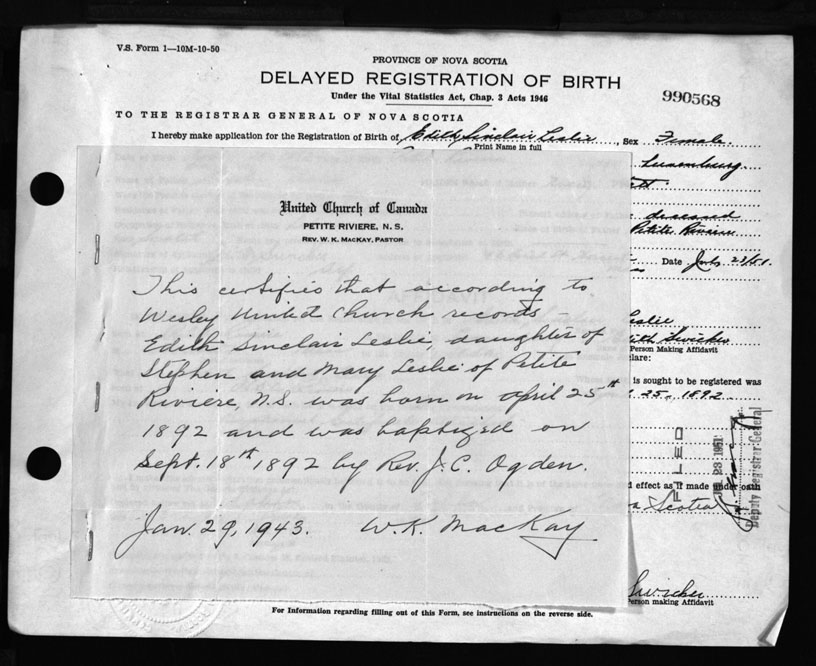 V.S. Form 1—10M-10-50
PROVINCE OF NOVA SCOTIA
DELAYED REGISTRATION OF BIRTH
Under the Vital Statistics Act, Chap. 3 Acts 1946
990568
TO THE REGISTRAR GENERAL OF NOVA SCOTIA
I hereby make application for the Registration of Birth of Edith Sinclair Leslie, Sex Female.
Print Name in full
Lunenburg
United Church of Canada
PETITE RIVIERE, N. S.
REV. W. K. MACKAY, PASTOR
This certifies that according to
Wesley United Church records –
Edith Sinclair Leslie, daughter of
Stephen and Mary Leslie of Petite
Riviere, N.S. was born on April 25th
1892 and was baptized on
Sept. 18th 1892 by Rev. J. C. Ogden.
Jan. 29, 1943. W. K. MacKay
deceased
Petite Riviere
Date
Leslie
Person Making Affidavit
clare:
is sought to be registered was
25, 1892
FILED
23 1951
Deputy Registrar General
d effect as if made under oath
a Scotia
Person making Affidavit
For Information regarding filling out of this Form, see instructions on the reverse side.